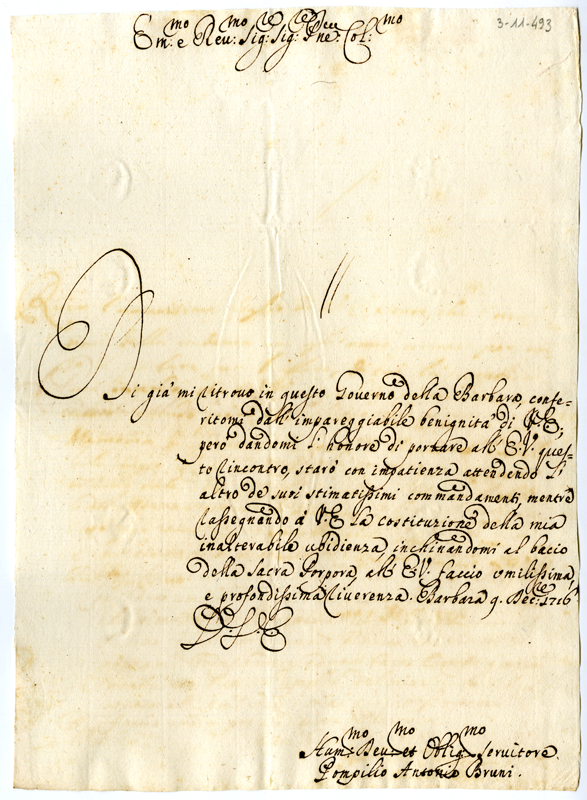 3-11-493
Em:mo e Reu:mo Sig:re Sig:re Pne: Col:mo
Di già mi ritrouo in questo Gouerno della Barbara, confe-
ritomi dall' impareggiabile benignità di V.E;
però dandomi l' honore di portare all' E.V. ques-
to rincontro, starò con impatienza attendendo l'
altro de suoi stimatissimi commandamenti, mentre
rassegnando à V.E la costituzione della mia
inalterabile ubidienza, inchinandomi al bacio
della Sacra Porpora, all' E.V. faccio umilissima,
e profondissima riuerenza. Barbara 9. Dec:re 1716
D. V. E
Hum:mo Deu:mo et Oblig:mo seruitore
Pompilio Antonio Bruni.